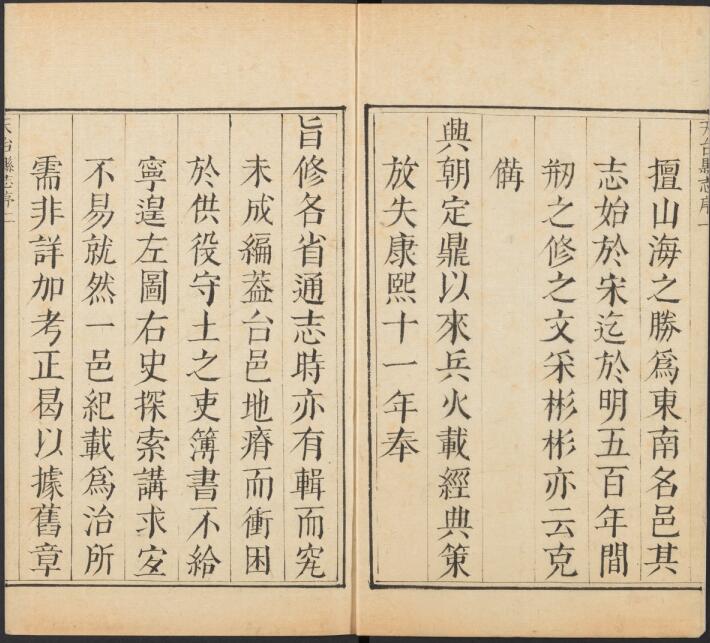 天台縣志序一
擅山海之勝爲東南名邑其
志始於宋迄於明五百年間
刱之修之文采彬彬亦云克
備
興朝定鼎以來兵火載經典策
放失康熙十一年奉
旨修各省通志時亦有輯而究
未成編葢台邑地瘠而衝困
於供役守土之吏簿書不給
寧遑左圖右史探索講求寔
不易就然一邑紀載爲治所
需非詳加考正曷以據舊章
天台縣志序二